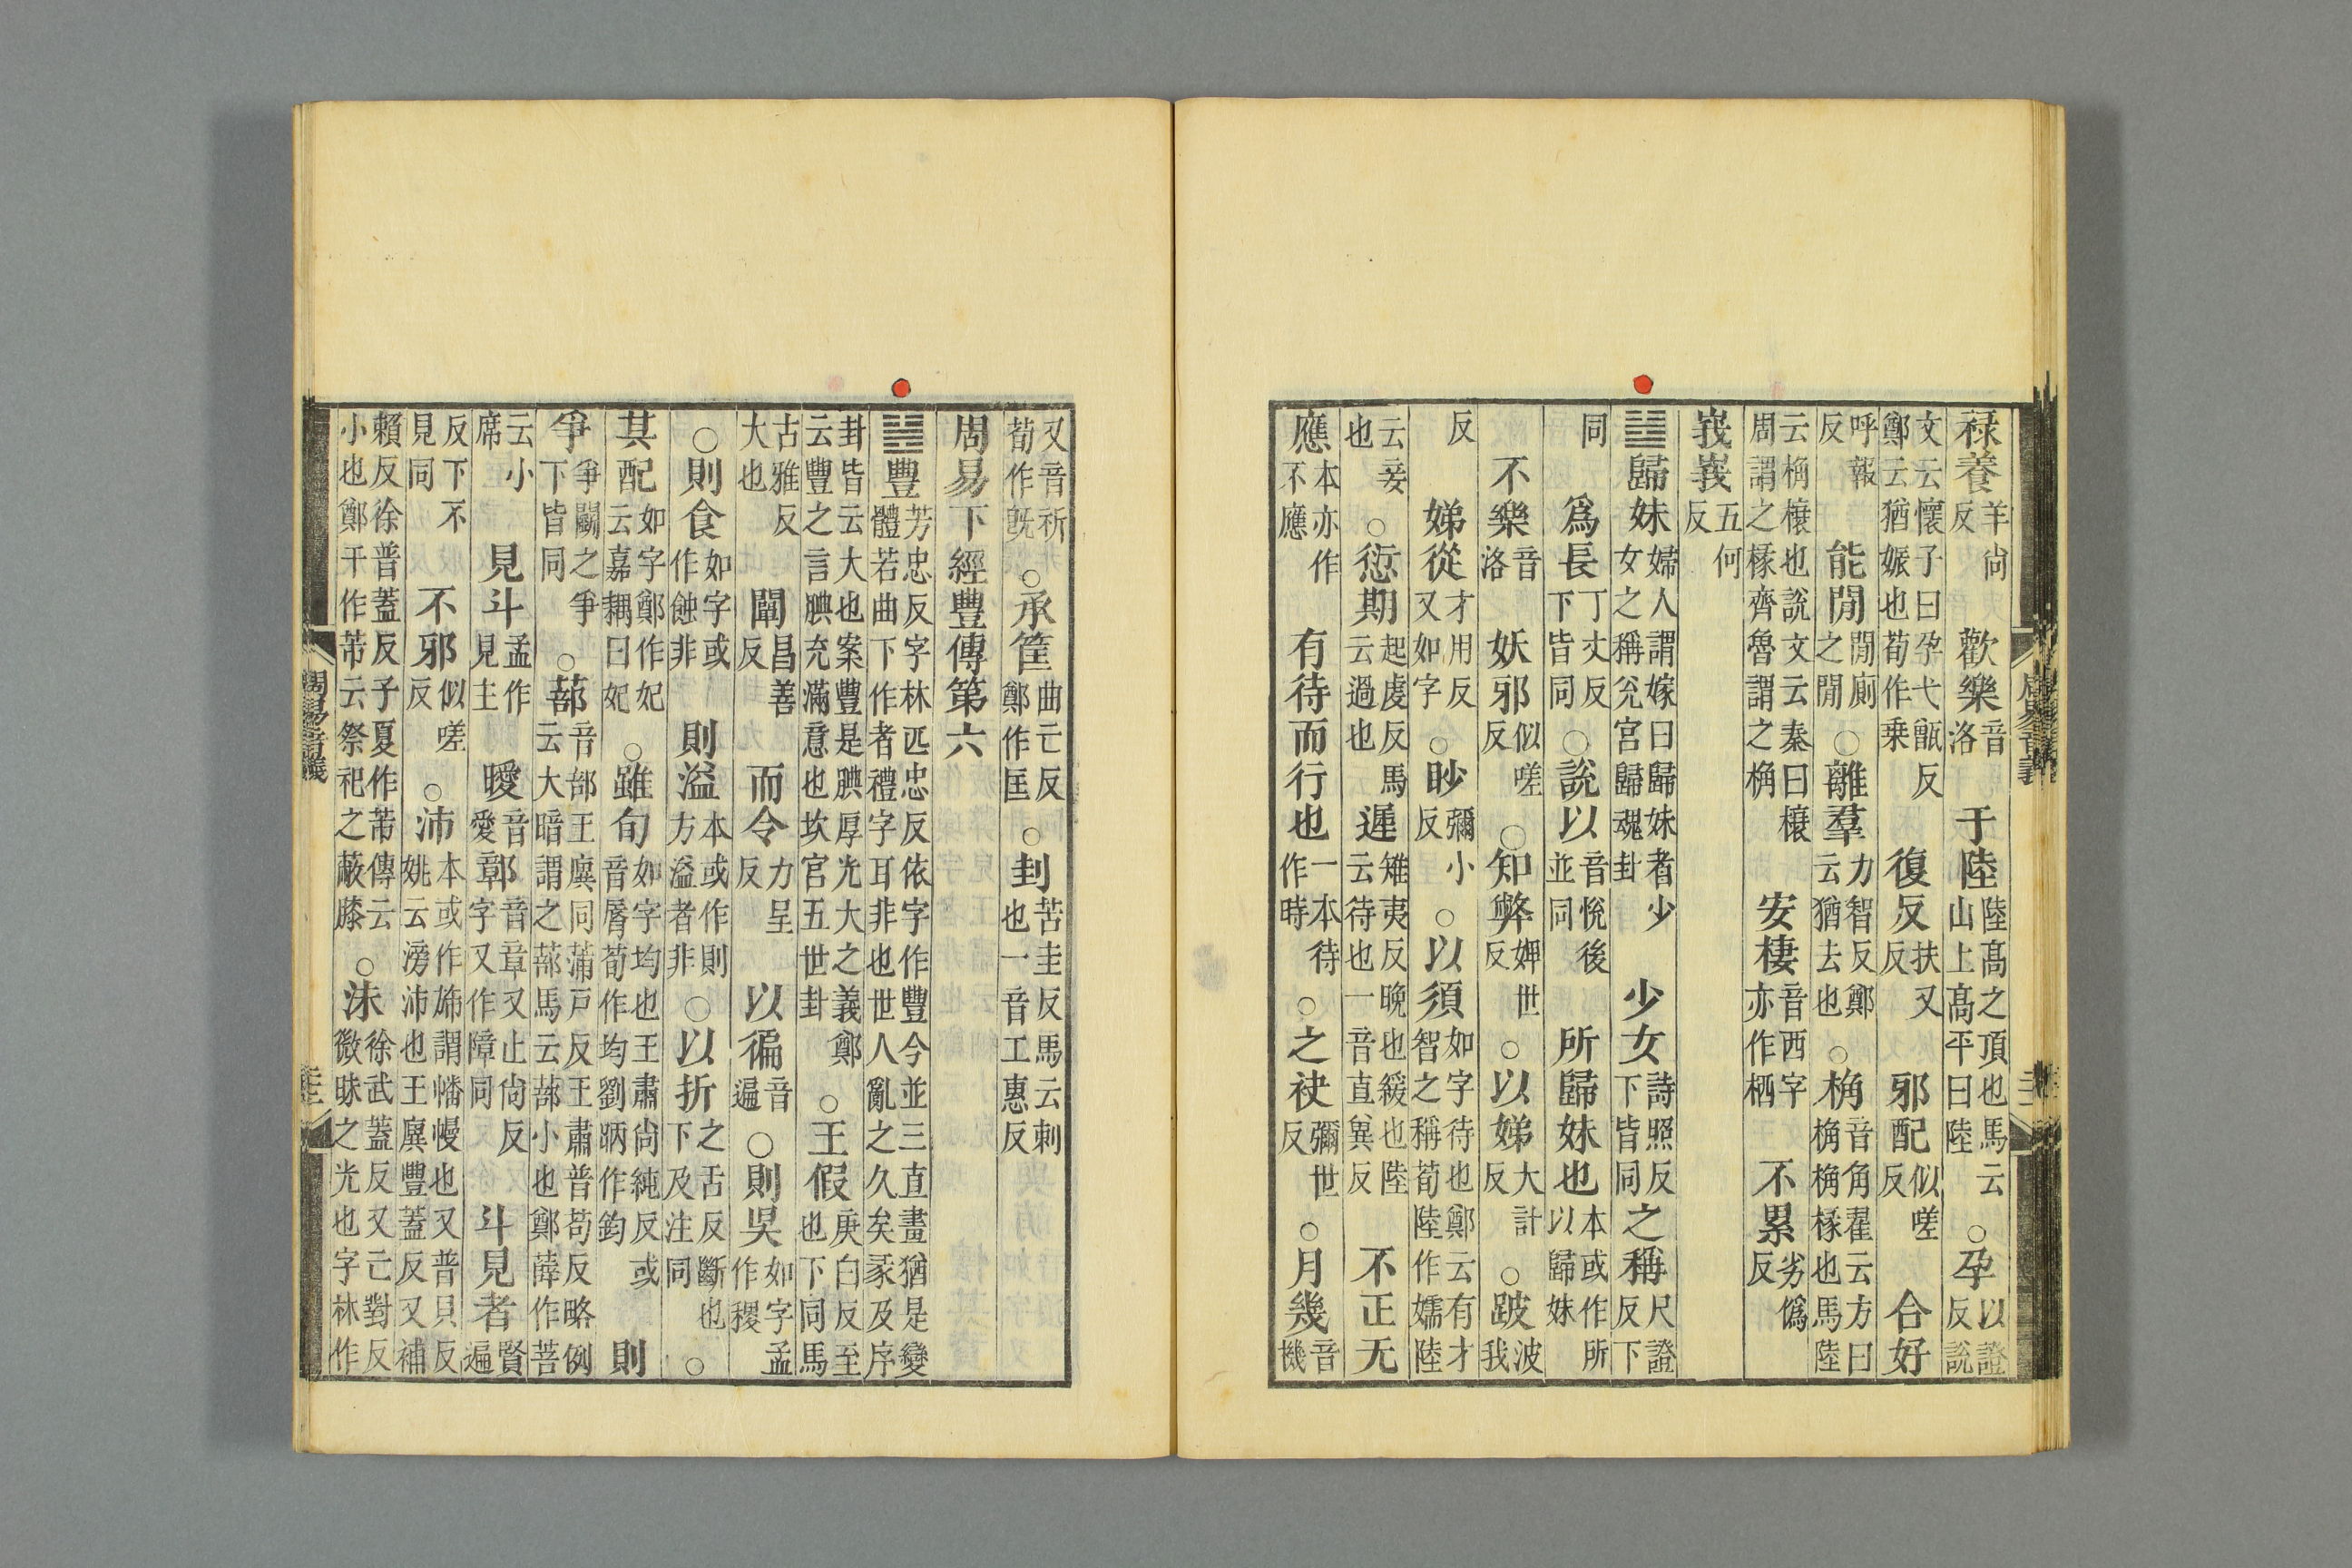 祿養羊尙反歡樂音洛于陸陸髙之頂也馬云山上髙平曰陸○孕以證反說
文云懷子曰孕弋甑反鄭云猶娠也荀作乗復反扶又反邪配似嗟反合好
呼報反能閒閒廁之閒○離羣力智反鄭云猶去也○桷音角翟云方曰桷桷椽也馬陸
云桷榱也說文云秦曰榱周謂之椽齊魯謂之桷安棲音西字亦作栖不累劣僞反
峩峩五何反
䷵歸妹婦人謂嫁曰歸妹者少女之稱兊宫歸魂卦少女詩照反下皆同之稱尺證反下
同爲長丁丈反下皆同○說以音悅後並同所歸妹也本或作所以歸妹
不樂音洛妖邪似嗟反○知弊婢世反○以娣大計反○跛波我
反娣從才用反又如字○眇彌小反○以須如字待也鄭云有才智之稱荀陸作嬬陸
云妾也○愆期起虔反馬云過也遲雉夷反晚也緩也陸云待也一音直兾反不正无
應本亦作不應有待而行也一本待作時○之袂彌世反○月幾音機
又音祈荀作旣○承筐曲亡反鄭作匡○刲苦圭反馬云刺也一音工惠反
周易下經豐傳第六
䷶豐芳忠反字林匹忠反依字作豐今並三直畫猶是變體若曲下作者禮字耳非也世人亂之久矣彖及序
卦皆云大也案豐是腆厚光大之義鄭云豐之言腆充滿意也坎宫五世卦○王假庚白反至也下同馬
古雅反大也闡昌善反而令力呈反以徧音遍○則吳如字孟作稷
○則食如字或作蝕非則溢本或作則方溢者非○以折之舌反斷也下及注同○
其配如字鄭作妃云嘉耦曰妃○雖旬如字均也王肅尙純反或音脣荀作均劉昞作鈞則
爭爭鬭之爭下皆同○蔀音部王廙同蒲戸反王肅普苟反略例云大暗謂之蔀馬云蔀小也鄭薛作菩
云小席見斗孟作見主曖音愛鄣音章又止尙反字又作障同斗見者賢遍
反下不見同不邪似嗟反○沛本或作斾謂幡幔也又普貝反姚云滂沛也王廙豐蓋反又補
賴反徐普蓋反子夏作芾傳云小也鄭干作芾云祭祀之蔽膝○沬徐武蓋反又亡對反微昧之光也字林作
周易音義